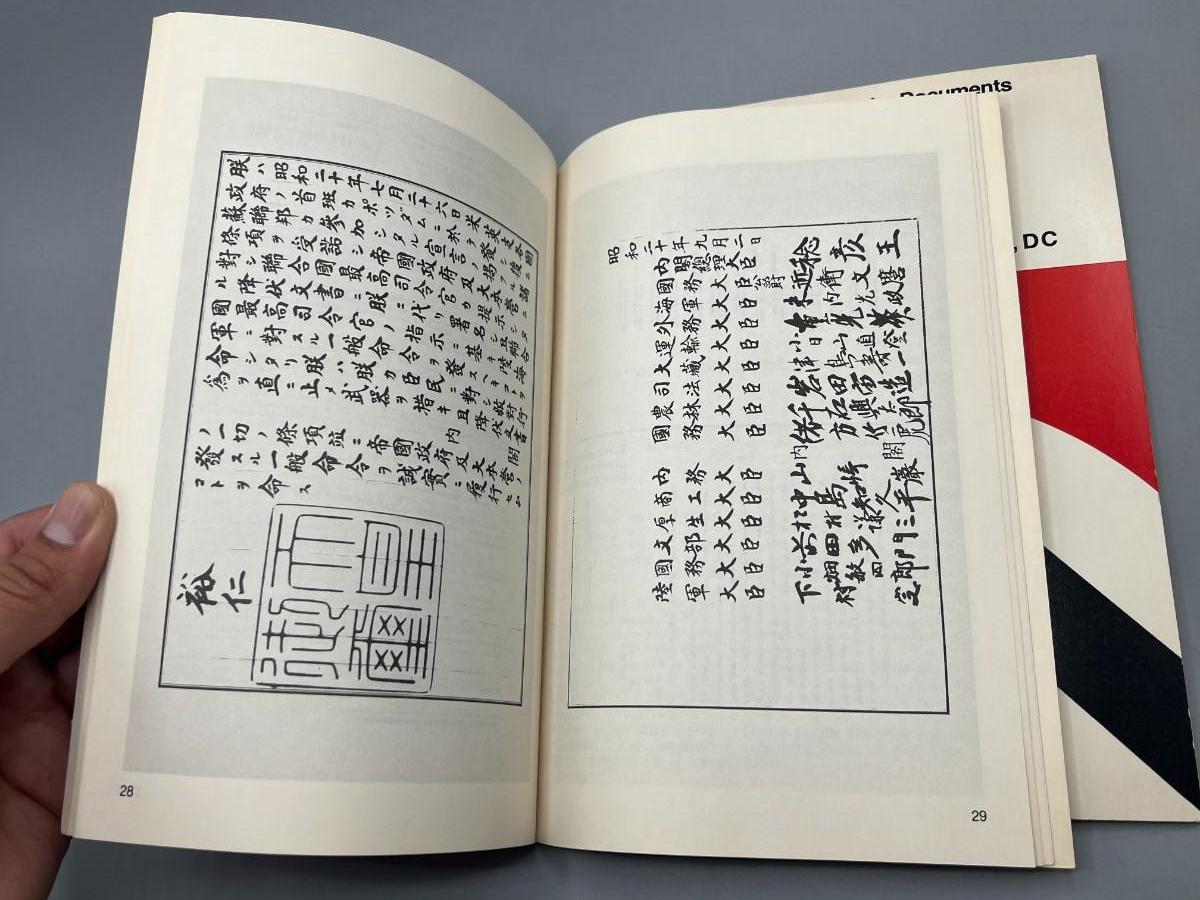 朕ハ昭和二十年七月二十六日米英支各國
政府ノ首班カポツダムニ於テ發シ後ニ
蘇聯邦カ參加シタル宣言ノ掲クル諸
條項ヲ受諾シ帝國政府及大本營ニ
對シ聯合國最高司令官カ提示シタ
ル降伏文書ニ朕ニ代リ署名シ且聯合
國最高司令官ノ指示ニ基キ陸海
軍ニ對スル一般命令ヲ發スヘキコトヲ
命シタリ朕ハ朕カ臣民ニ對シ敵對行
為ヲ直ニ止メ武器ヲ措キ且降伏文書
ノ一切ノ條項竝ニ帝國政府及大本營ノ
發スル一般命令ヲ誠實ニ履行セム
コトヲ命ス
裕仁
28
昭和二十年九月二日
内閣總理大臣 稔彦王
國務大臣 公爵 近衞文麿
海軍大臣 米内光政
外務大臣 重光葵
運輸大臣 小日山直登
大藏大臣 津島壽一
司法大臣 岩田宙造
農林大臣 千石興太郎
國務大臣 緒方竹虎
内務大臣 山崎巖
商工大臣 中島知久平
厚生大臣 松村謙三
文部大臣 前田多門
國務大臣 小畑敏四郎
陸軍大臣 下村定
29
Documents
, DC